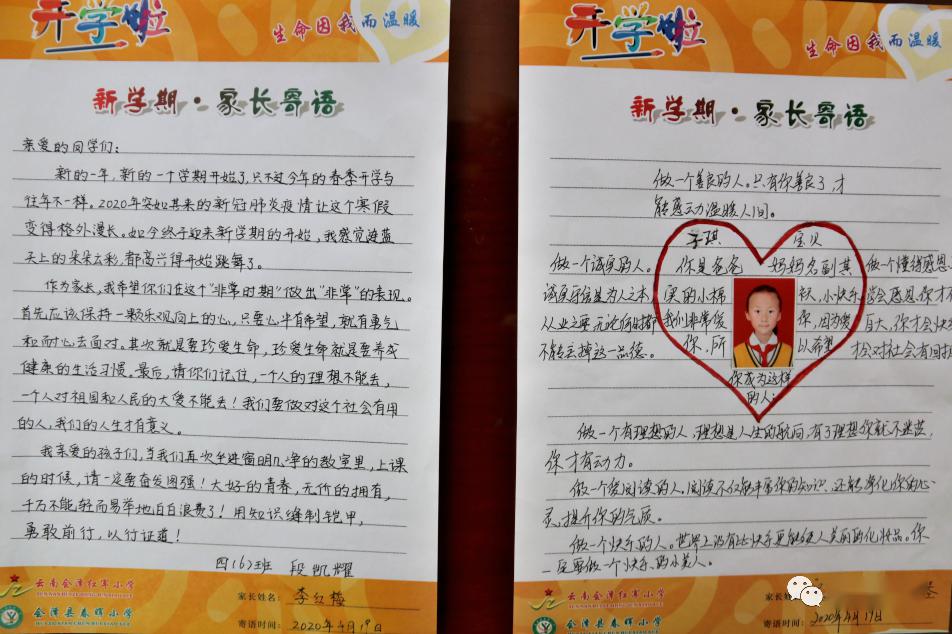 开学啦
生命因我而温暖
新学期·家长寄语
亲爱的同学们：
新的一年，新的一个学期开始了，只不过今年的春季开学与
往年不一样。2020年突如其来的新冠肺炎疫情让这个寒假
变得格外漫长。如今终于迎来新学期的开始，我感觉连蓝
天上的朵朵云彩，都高兴得开始跳舞了。
作为家长，我希望你们在这个"非常时期"做出"非常"的表现。
首先应该保持一颗乐观向上的心，只要心中有希望，就有勇气
和耐心去面对。其次就是要珍爱生命，珍爱生命就是要养成
健康的生活习惯。最后，请你们记住，一个人的理想不能丢，
一个人对祖国和人民的大爱不能丢！我们要做对这个社会有用
的人，我们的人生才有意义。
我亲爱的孩子们，当我们再次坐进窗明几净的教室里，上课
的时候，请一定要奋发图强！大好的青春，无价的拥有，
千万不能轻而易举地白白浪费了！用知识缝制铠甲，
勇敢前行，以行证道！
四(6)班 段凯耀
云南会泽红军小学
会泽县春晖小学
家长姓名：李红梅
寄语时间：2020年4月19日
开学啦
生命因我而温暖
新学期·家长寄语
做一个善良的人。只有你善良了，才
能感动温暖人间。
子琪 宝贝
你是爸爸 妈妈名副其
实的小棉 袄，小快乐
我们非常爱 你，因为爱
你，所 以希望
你成为这样
的人：
做一个诚实的人。
诚实守信是为人之本，
从业之要，无论何时都
不能丢掉这一品德。
做一个懂得感恩
学会感恩你才
自大，你才会快
才会对社会有回报
做一个有理想的人，理想是人生的航向，有了理想你就不迷茫，
你才有动力。
做一个爱阅读的人。阅读不仅能丰富你的知识，还能净化你的心
灵，提升你的气质。
做一个快乐的人。世界上没有比快乐更能使人美丽的化妆品。你
一定要做一个快乐的小美人。
云南会泽红军小学
会泽县春晖小学
家长姓
寄语时间：2020年4月19日